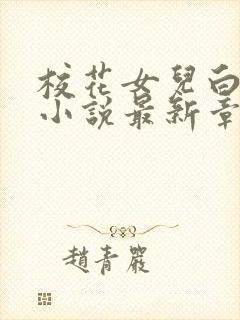 校花女兒白
小說最新章
趙青嚴